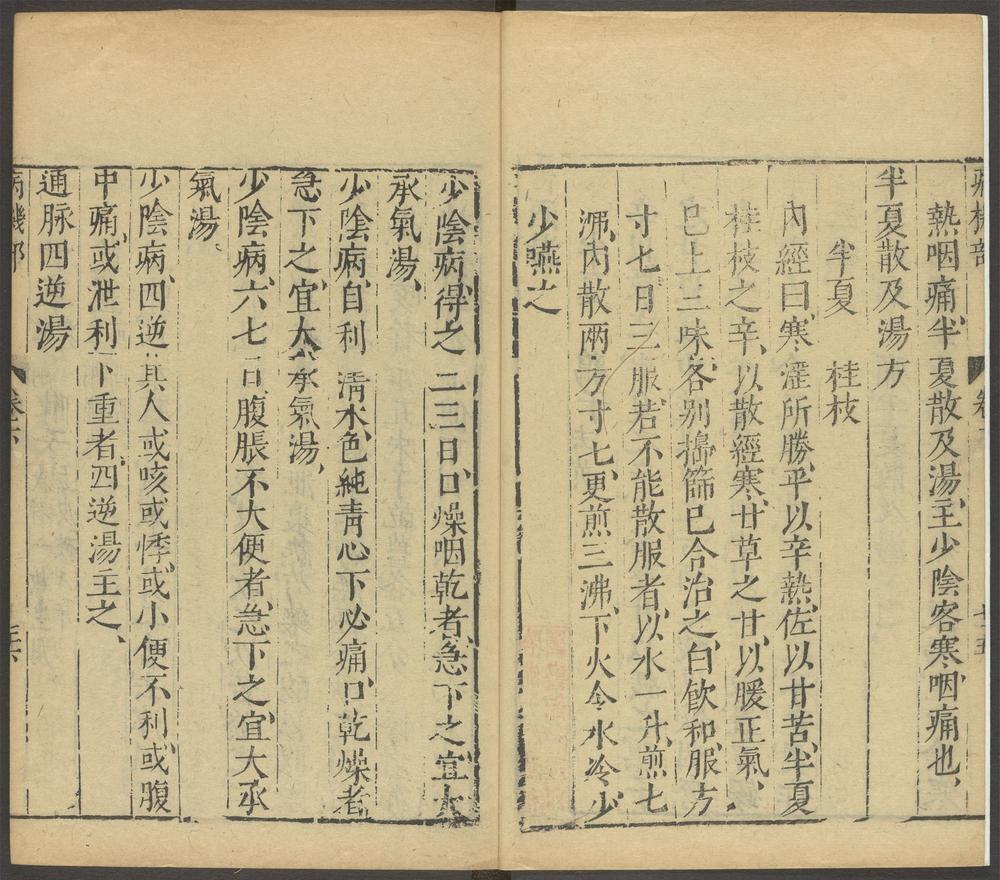 熱咽痛、半夏散及湯、主少陰客寒咽痛也、
半夏散及湯方
半夏　桂枝
內經曰、寒淫所勝、平以辛熱、佐以甘苦、半夏
桂枝之辛、以散經寒、甘草之甘、以暖正氣、
已上三味、各別搗篩已、合治之、白飲和服方
寸七日三服、若不能散服者、以水一升、煎七
沸、內散兩方寸七、更煎三沸、下火令水冷、少
少嚥之
少陰病、得之二三日、口燥咽乾者、急下之、宜大
承氣湯、
少陰病、自利清水、色純靑心下必痛、口乾燥者
急下之、宜大承氣湯、
少陰病、六七日腹脹不大便者、急下之、宜大承
氣湯。
少陰病、四逆其人或咳或悸、或小便不利、或腹
中痛、或泄利下重者、四逆湯主之、
通脉四逆湯
病機部　卷六